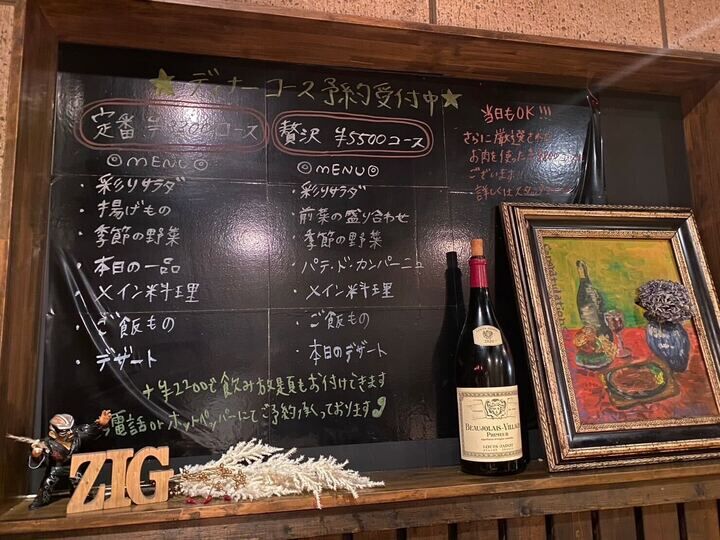 ★ディナーコース予約受付中★
定番 コース
◎MENU◎
・彩りサラダ
・揚げもの
・季節の野菜
・本日の一品
・メイン料理
・ご飯もの
・デザート
贅沢 ¥5500コース
◎MENU◎
・彩りサラダ
・前菜の盛り合わせ
・季節の野菜
・パテ・ド・カンパーニュ
・メイン料理
・ご飯もの
・本日のデザート
当日もOK!!!
さらに厳選された
お肉を使った
ございます!!
詳しくはスタッフ
+¥2200で飲み放題もお付けできます
電話orホットペッパーにてご予約承っております
ZIG
BEAUJOLAIS-VILLAGES
PRIMEUR
LOUIS JADOT